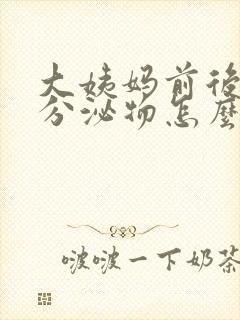 大姨妈前後
分泌物怎麼
啵啵一下奶茶